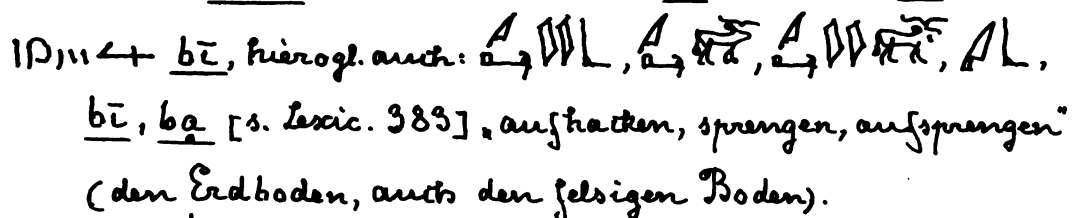 bī, hierogl. auch: , , , ,
bī, ba [s. Lexic. 383] „aufhacken, sprengen, aufsprengen"
(den Erdboden, auch den felsigen Boden).